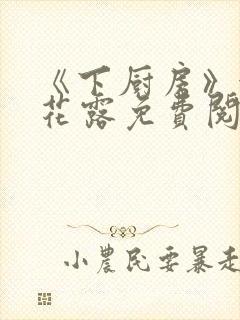 《下厨房》
花露免費閱
小農民要暴走